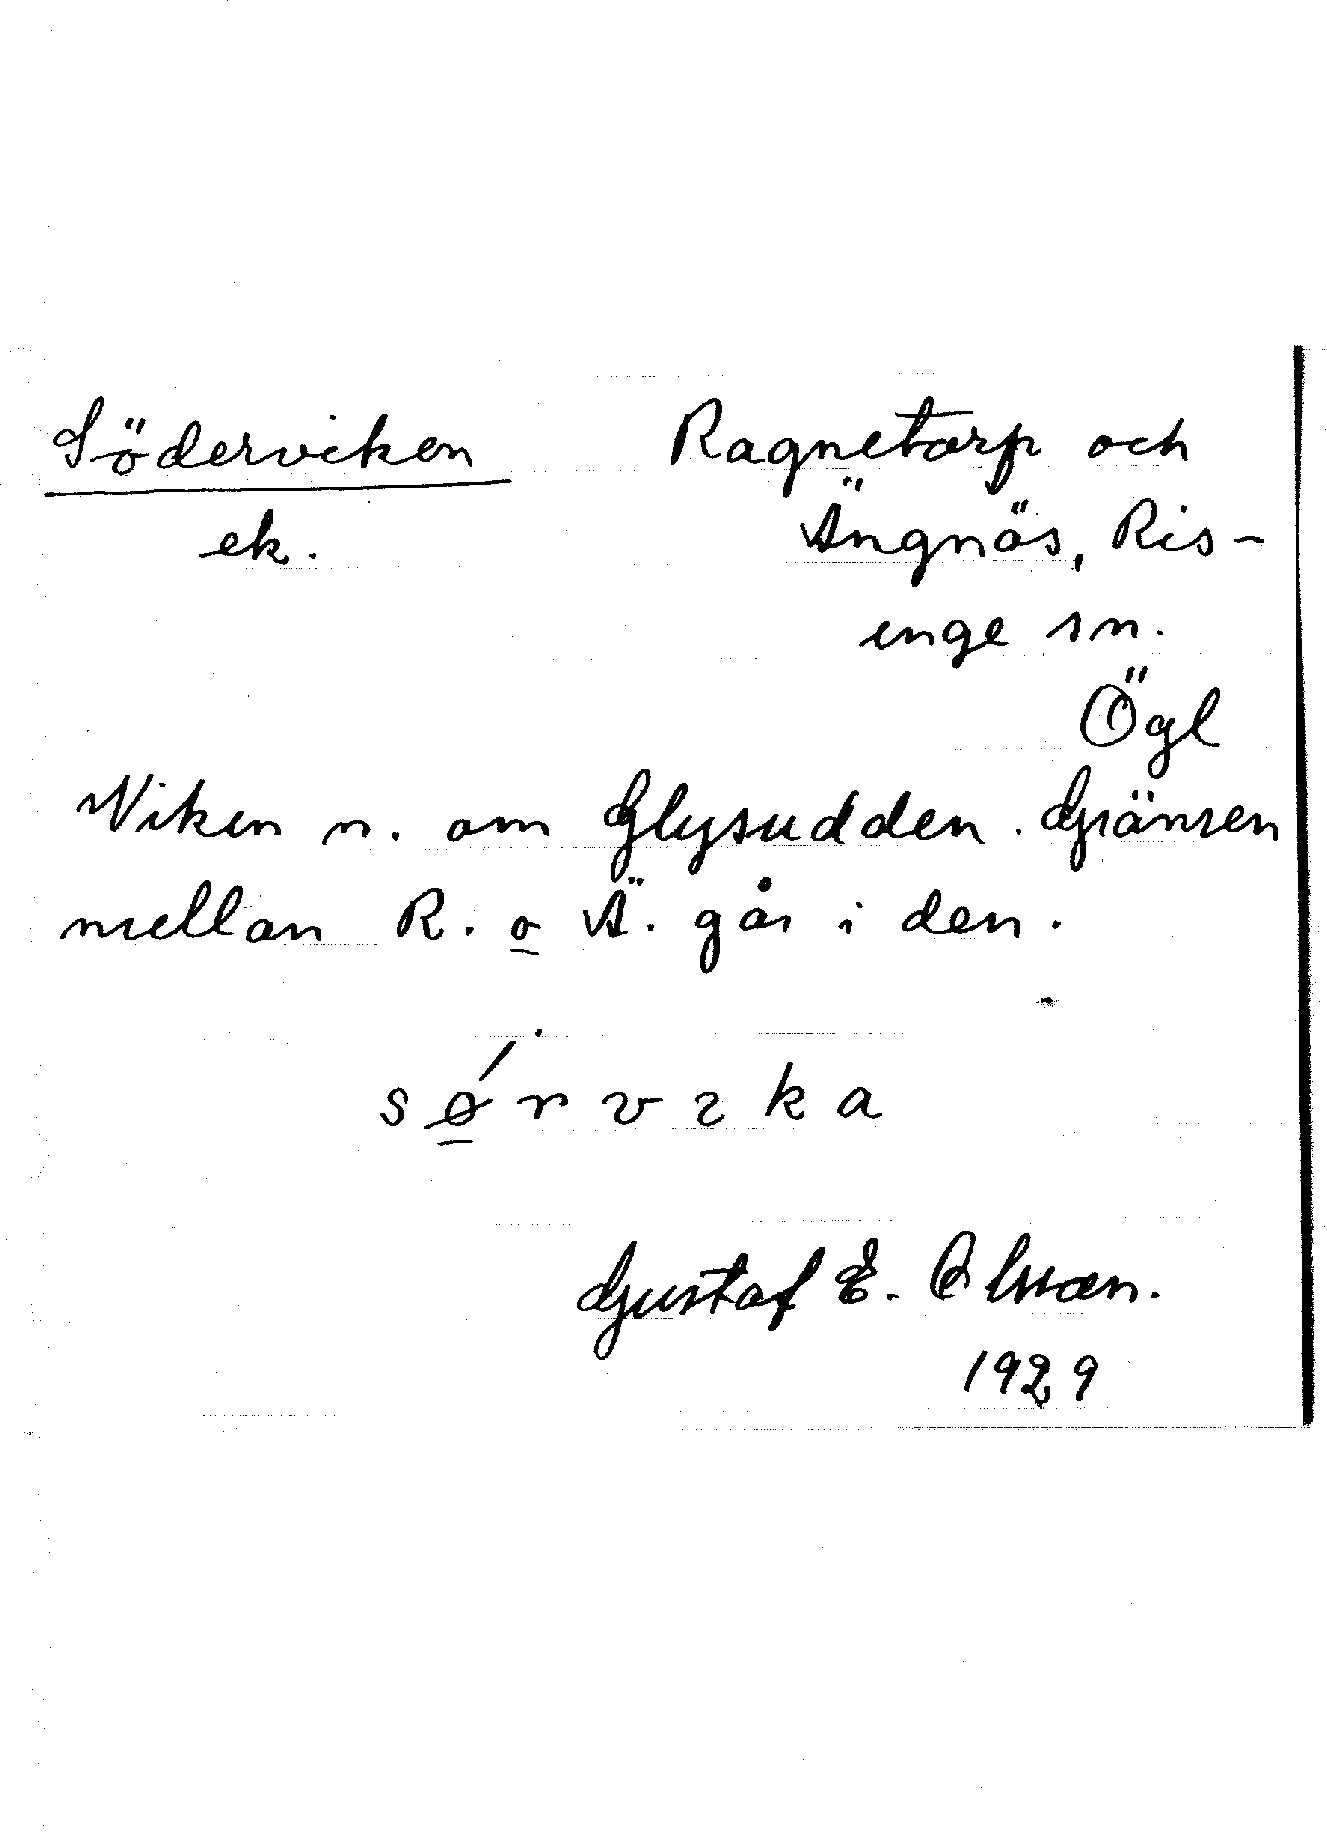 Söderviken Ragnetorp och
ek. Ängnäs, Ris-
inge sn.
Ögl
Viken n. om Glysudden. Gränsen
mellan R. o Ä. går i den.
sǿ̱rvıka
Gustaf E. Olsson.
1929